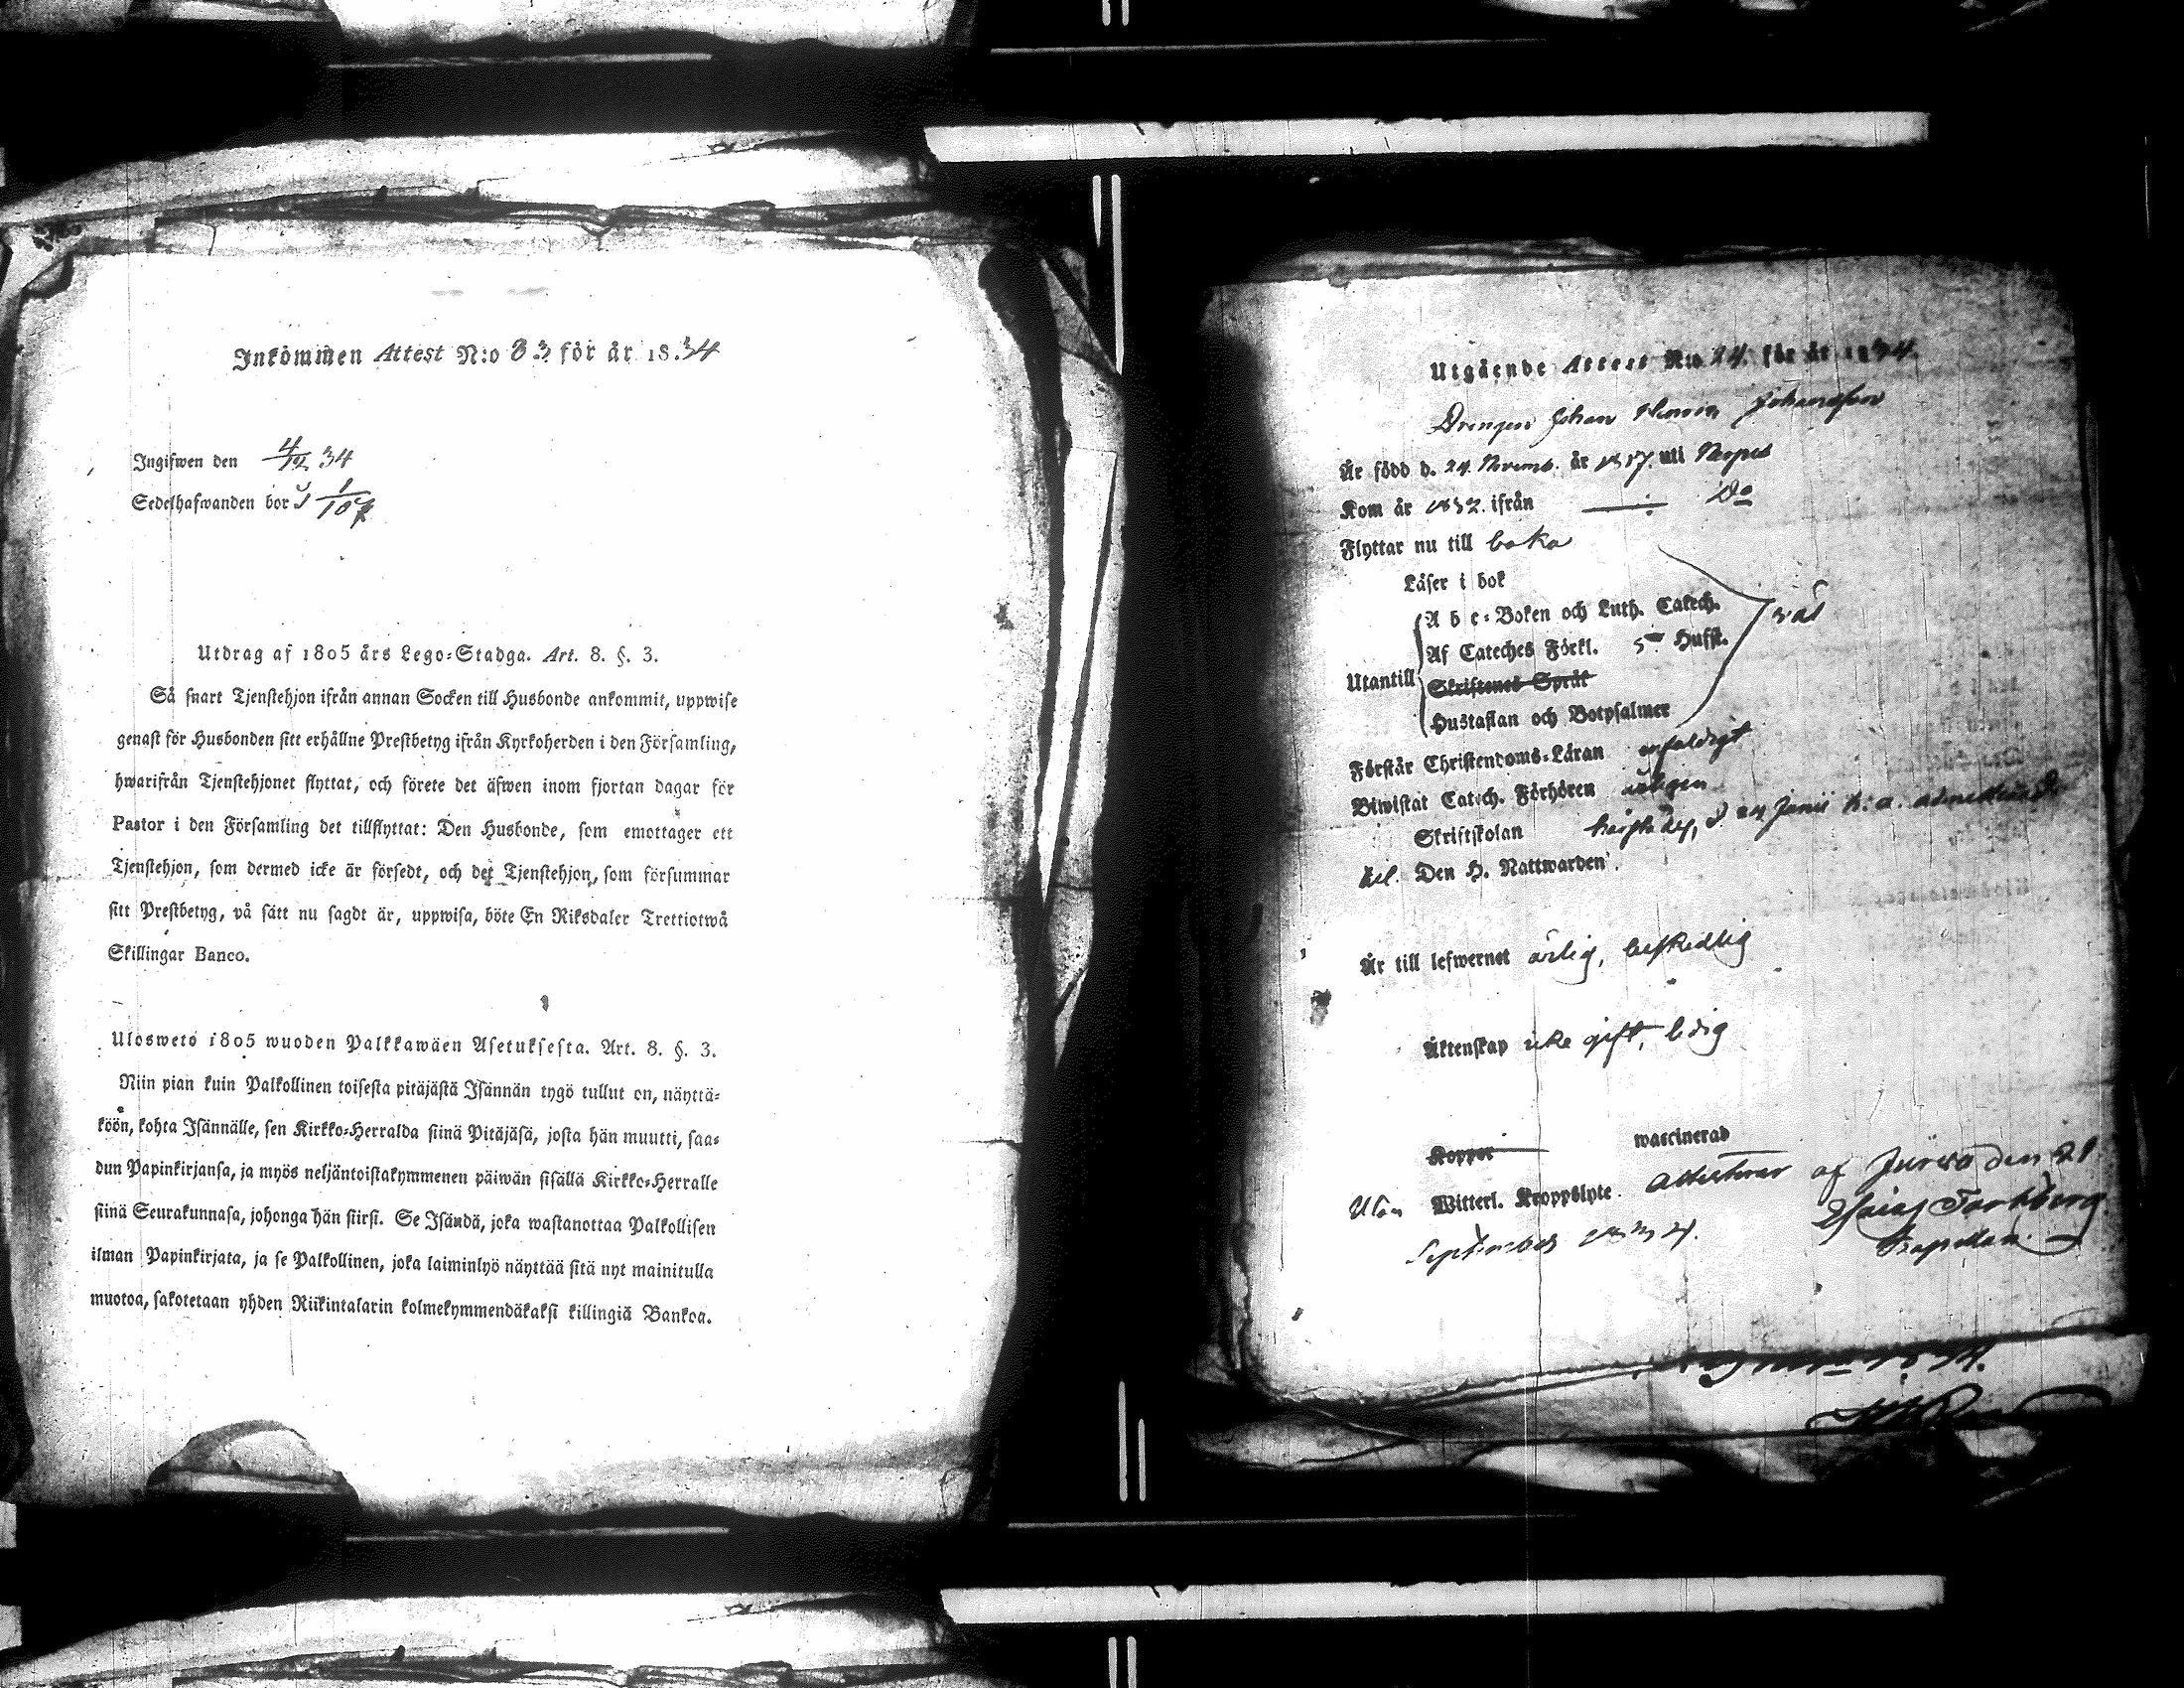 Inkommen Attest N:o 83 för år 1834
Ingifwen den 4/12 34
Sedelhafwanden bor
Utdrag af 1805 års Lego-Stadga. Art. 8. §. 3.
Så snart Tjenstehjon ifrån annan Socken till Husbonde ankommit, uppwise
genast för Husbonden sitt erhållne Prestbetyg ifrån Kyrkoherden i den Församling,
hwarifrån Tjenstehjonet flyttat, och förete det äfwen inom fjortan dagar för
Pastor i den Församling det tillflyttat: Den Husbonde, som emottager ett
Tjenstehjon, som dermed icke är försedt, och det Tjenstehjon, som försummar
sitt Prestbetyg, på sätt nu sagdt är, uppwisa, böte En Riksdaler Trettiotwå
Skillingar Banco.
Ulosweto 1805 wuoden Palkkawäen Asetuksesta. Art. 8. §. 3.
Niin pian kuin Palkollinen toisesta pitäjästä Isännän tygö tullut on, näyttä-
köön, kohta Isännälle, sen Kirkko-Herralda siinä Pitäjäsä, josta hän muutti, saa-
dun Papinkirjansa, ja myös neljäntoistakymmenen päiwän sisällä Kirkko-Herralle
siinä Seurakunnasa, johonga hän siirsi. Se Isändä, joka wastanottaa Palkollisen
ilman Papinkirjata, ja se Palkollinen, joka laiminlyö näyttää sitä nyt mainitulla
muotoa, sakotetaan yhden Riikintalarin kolmekymmendäkaksi killingiä Bankoa.
Utgående Attest N:o 24. för år 1834.
Drengen Johan Johansson
Är född d. 24 Novemb. år 1817. uti
Kom år 1832. ifrån Do
Flyttar nu till
Läser i bok
A b c-Boken och Luth. Catech.
Af Cateches Förkl. 5 Hufst.
Utantill
Skriftenes Språk
Hustaflan och Botpsalmer
väl
Förstår Christendoms-Läran enfaldigt
Biwistat Catech. Förhören
Skriftskolan d. 24 Junii h: a.
till Den H. Nattwarden.
Är till lefwernet ärlig, beskedlig
Äktenskap icke gift, ledig
Koppor waccinerad
Utan Witterl. Kroppslyte. attesterar af Jurwa den 21
September 1834.
Esaias
Capellan
1834.